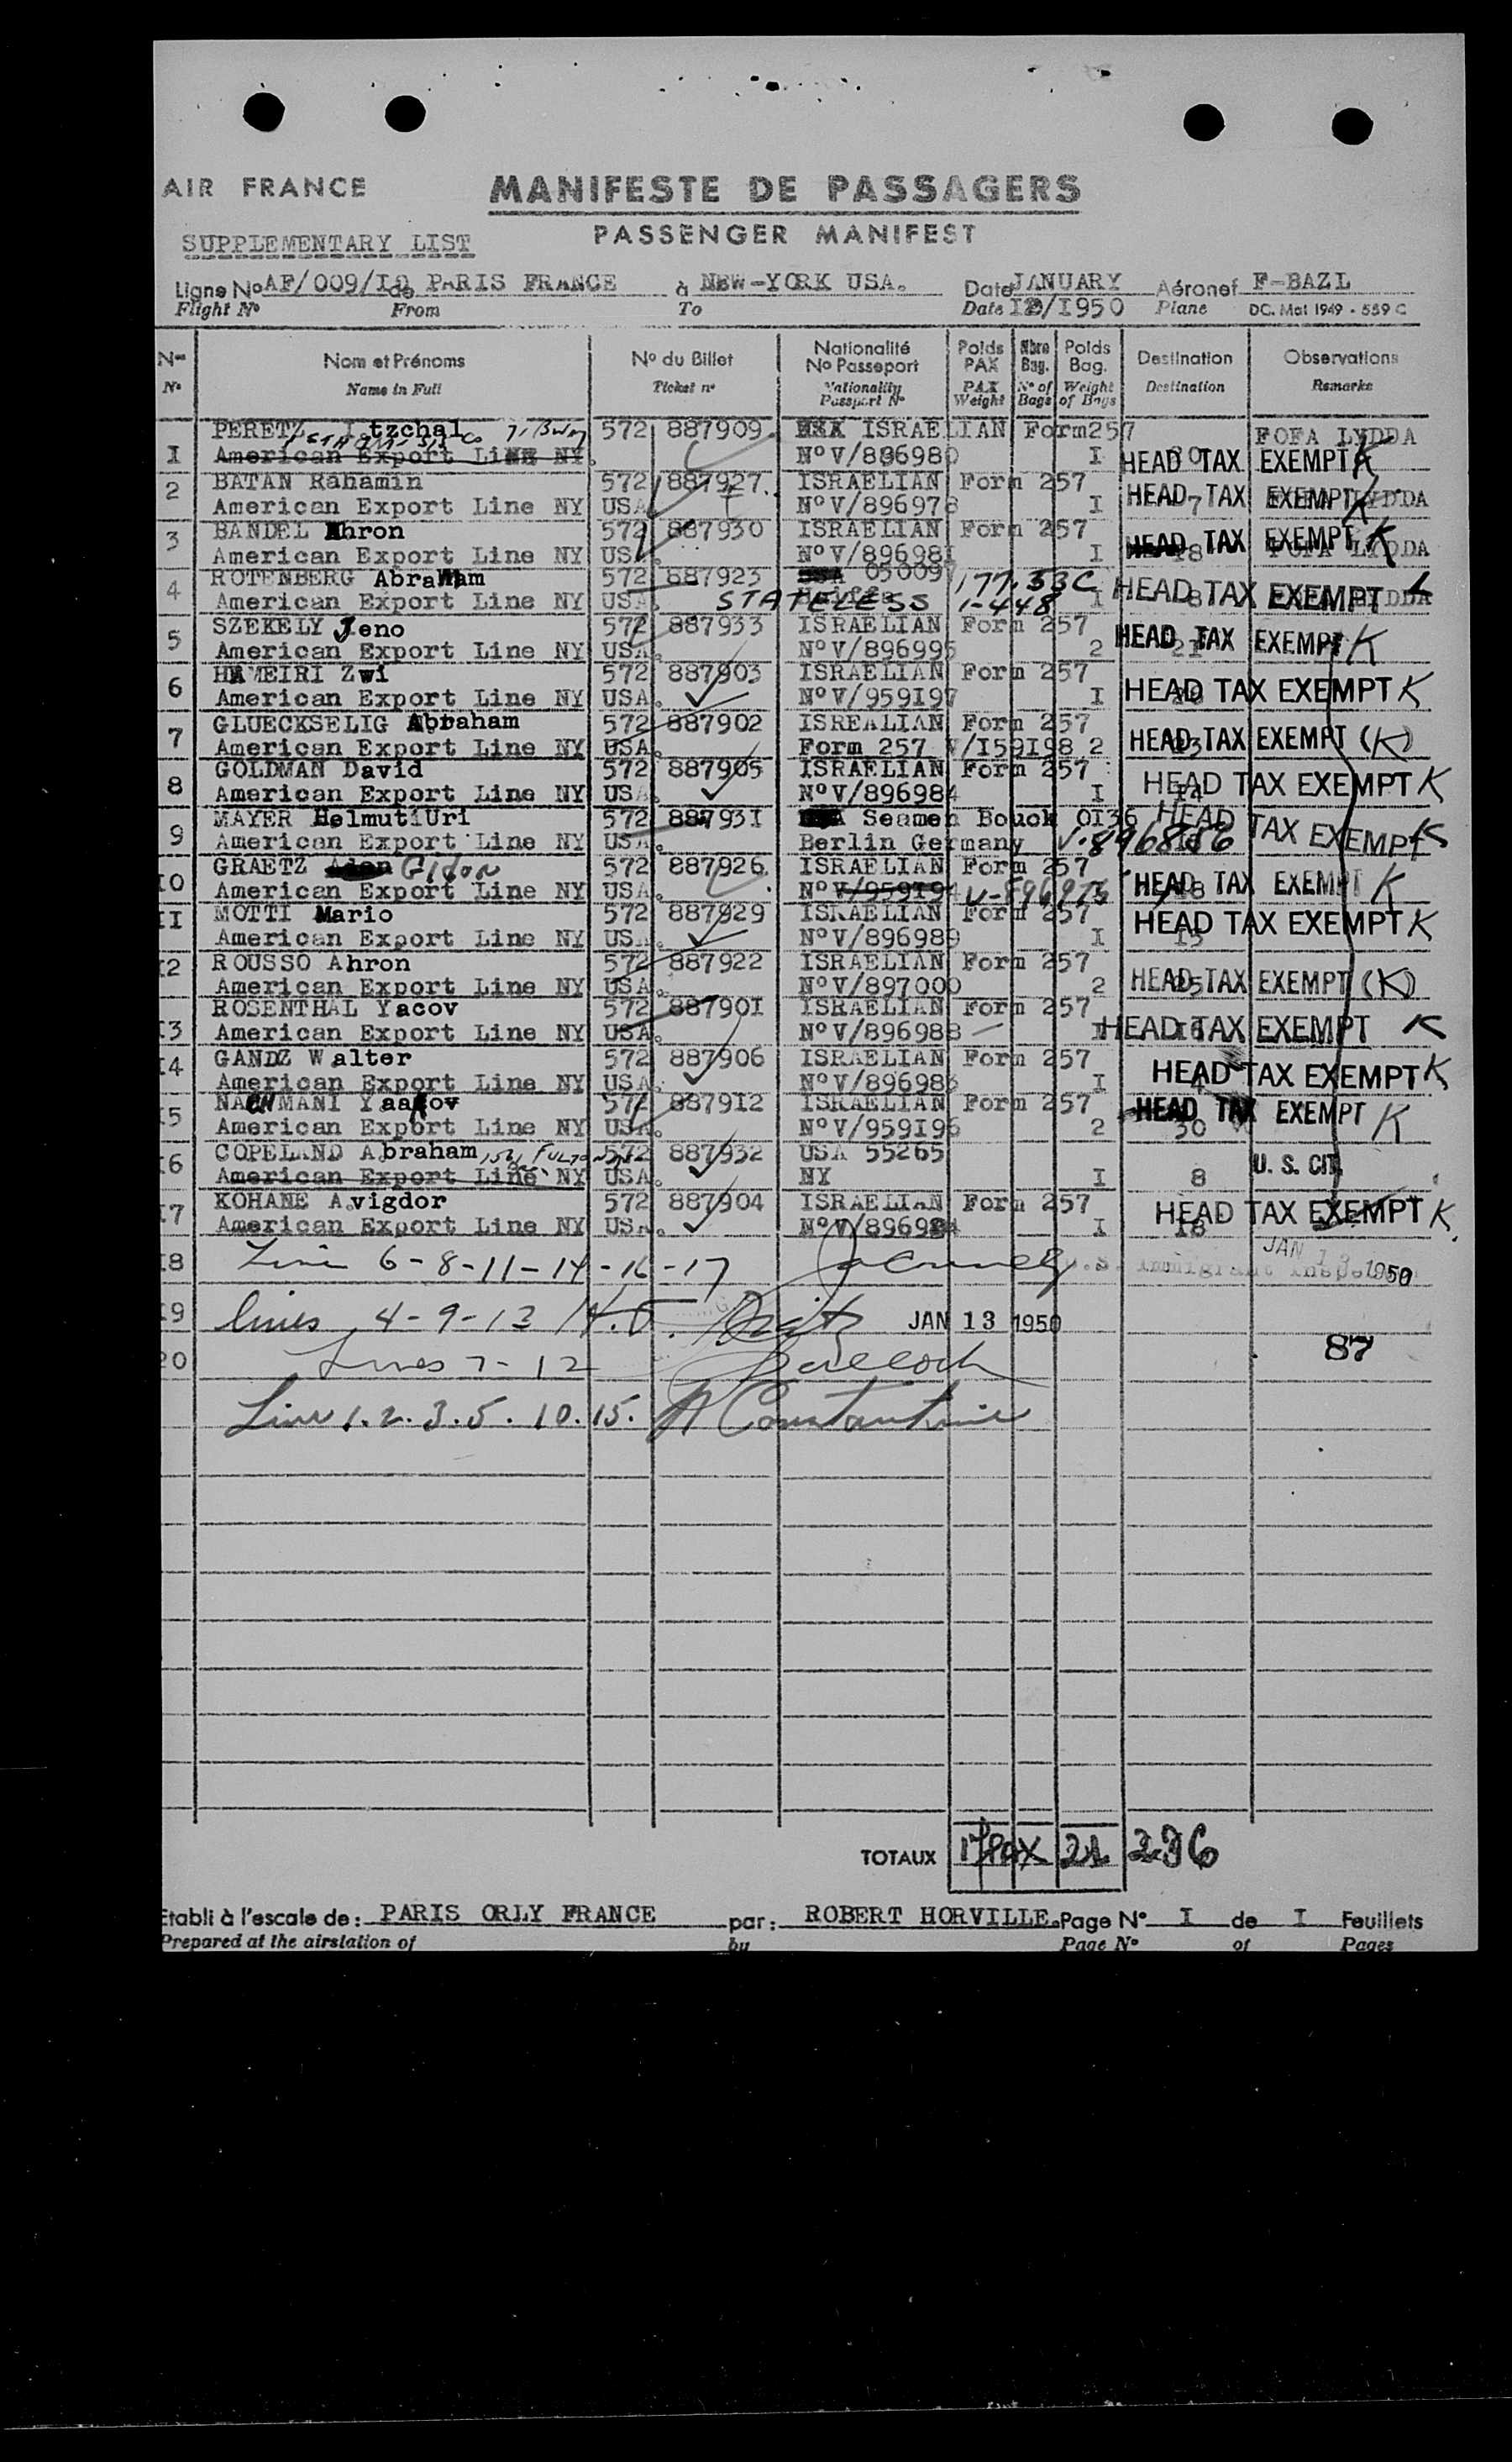 AIR FRANCE
MANIFESTE DE PASSAGERS
SUPPLEMENTARY LIST
PASSENGER MANIFEST
Ligne No AF/009/I0 de PARIS FRANCE à NEW-YORK USA. Date JANUARY Aéronef F-BAZL
Flight No From To Date /I950 Plane DC. Mat 1949 - 559 C
No Nom et Prénoms No du Billet Nationalité No Passeport Poids PAX Nbre Bag. Poids Bag. Destination Observations
No Name in Full Ticket no Nationality Passport No PAX Weight No of Bags Weight of Bags Destination Remarks
PERETZ Itzchal 572 887909 ISRAELIAN Form257 FOFA LYDDA
I American Export Line NY. No V/896980 I HEAD TAX EXEMPT K
2 BATAN Rahamin 572 887927 ISRAELIAN Form 257
American Export Line NY USA No V/896978 I 7 HEAD TAX EXEMPT K LYDDA
3 BANDEL Ahron 572 887930 ISRAELIAN Form 257
American Export Line NY USA No V/89698I I 18 HEAD TAX EXEMPT K FOFA LYDDA
4 ROTENBERG Abraham 572 887923 05009 177.53C HEAD TAX EXEMPT
American Export Line NY USA. STATELESS 1-448 I 8 LYDDA
5 SZEKELY Jeno 572 887933 ISRAELIAN Form 257
American Export Line NY USA. No V/896995 2 2I HEAD TAX EXEMPT K
6 HAMEIRI Zwi 572 887903 ISRAELIAN Form 257
American Export Line NY USA. No V/959I97 I HEAD TAX EXEMPT K
7 GLUECKSELIG Abraham 572 887902 ISREALIAN Form 257
American Export Line NY USA. Form 257 V/I59I98 2 HEAD TAX EXEMPT (K)
8 GOLDMAN David 572 887905 ISRAELIAN Form 257
American Export Line NY USA. No V/896984 I I4 HEAD TAX EXEMPT K
9 MAYER Helmut Uri 572 88793I Seamen Bouok 0I36 HEAD TAX EXEMPT K
American Export Line NY USA. Berlin Germany V.896856
I0 GRAETZ Gidon 572 887926. ISRAELIAN Form 257
American Export Line NY USA. No V/959I94 V-896973 I I8 HEAD TAX EXEMPT K
II MOTTI Mario 572 887929 ISRAELIAN Form 257
American Export Line NY USA. No V/896989 I I5 HEAD TAX EXEMPT K
I2 ROUSSO Ahron 572 887922 ISRAELIAN Form 257
American Export Line NY USA. No V/897000 2 25 HEAD TAX EXEMPT (K)
ROSENTHAL Yacov 572 88790I ISRAELIAN Form 257
I3 American Export Line NY USA. No V/896988 I I6 HEAD TAX EXEMPT K
I4 GANDZ Walter 572 887906 ISRAELIAN Form 257
American Export Line NY USA. No V/896983 I HEAD TAX EXEMPT K
I5 NACHMANI Yaakov 572 887912 ISRAELIAN Form 257
American Export Line NY USA. No V/959I96 2 30 HEAD TAX EXEMPT K
I6 COPELAND Abraham 572 887932 USA 55265 U. S. CIT.
American Export Line NY USA. NY I 8
I7 KOHANE Avigdor 572 887904 ISRAELIAN Form 257
American Export Line NY USA. No V/896984 I I8 HEAD TAX EXEMPT K
I8 Line 6-8-11-14-16-17 U.S. immigrant inspector JAN 13 1950
I9 lines 4-9-13 JAN 13 1950
20 Lines 7-12 87
Line 1.2.3.5.10.15. A Constantine
TOTAUX 17 PAX 21 296
Etabli à l'escale de: PARIS ORLY FRANCE par: ROBERT HORVILLE. Page No I de I Feuillets
Prepared at the airstation of by Page No of Pages